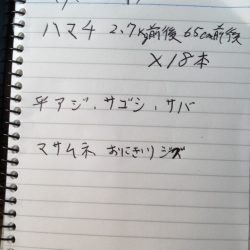 ハマチ 2.7kg前後 65cm前後
×18本
平アジ、サゴシ、サバ
マサムネ おにぎりシズ